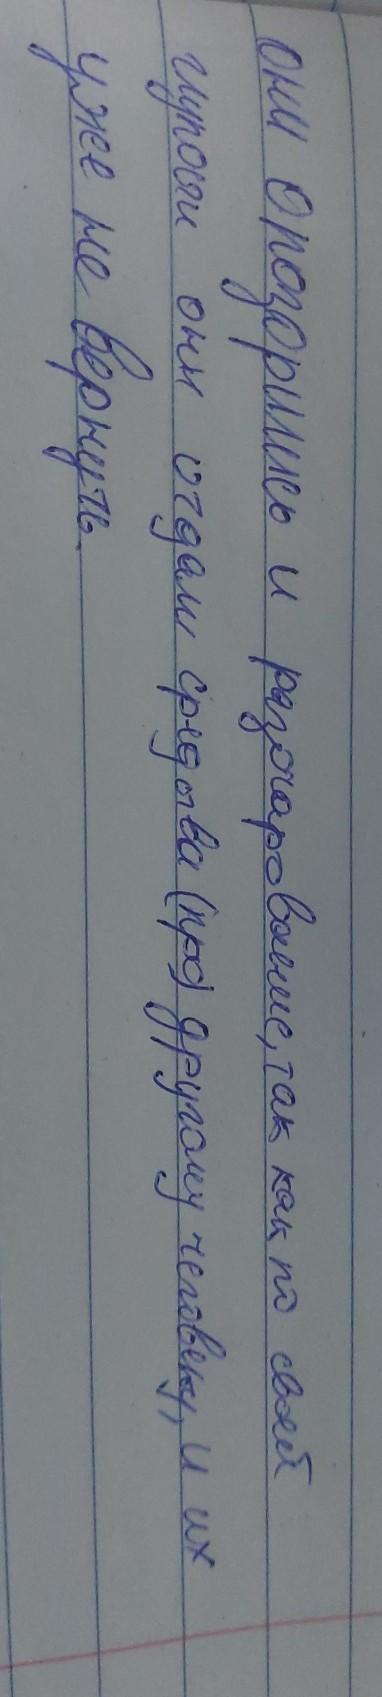 они опозорились и разочарование, так как по своей
глупости они отдали средства (про) другому человеку, и их
уже не вернуть.